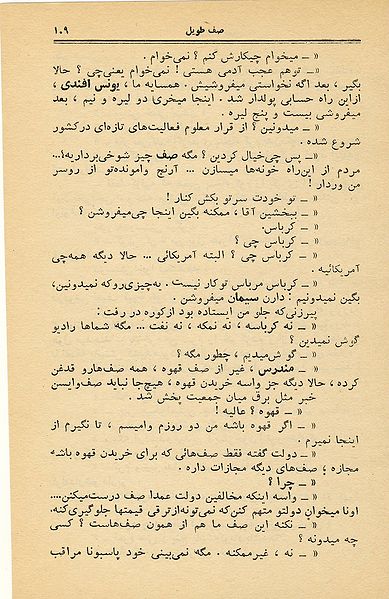 صف طویل ۱۰۹
«ـ میخوام چیکارش کنم ؟ نمی‌خوام .
«ـ توهم عجب آدمی هستی ! نمی‌خوام یعنی‌چی ؟ حالا
بگیر ، بعد اگه نخواستی میفروشیش . همسایه ما ، یونس افندی ،
ازاین راه حسابی پولدار شد . اینجا میخری دو لیره و نیم ، بعد
میفروشی بیست و پنج لیره .
«ـ میدونین ؟ از قرار معلوم فعالیت‌های تازه‌ای درکشور
شروع شده .
«ـ پس چی‌خیال کردین ؟ مگه صف چیز شوخی‌برداریه؟...
مردم از این‌راه خونه‌ها میسازن ... آرنج وامونده‌تو از روسر
من وردار !
«ـ تو خودت سرتو بکش کنار !
«ـ ببخشین آقا ، ممکنه بگین اینجا چی‌میفروشن ؟
«ـ کرباس.
«ـ کرباس چی ؟
«ـ کرباس چی ؟ البته آمریکائی ... حالا دیگه همه‌چی
آمریکائیه .
«ـ کرباس مرباس توکار نیست . یه‌چیزی‌روکه نمیدونین،
بگین نمیدونیم : دارن سیمان میفروشن .
پیرزنی‌که جلو من ایستاده بود ازکوره در رفت :
«ـ نه کرباسه ، نه نمکه ، نه نفت ... مگه شماها رادیو
گوش نمیدین ؟
«ـ گوش‌میدیم ، چطور مگه ؟
«ـ مندرس ، غیر از صف قهوه ، همه صف‌هارو قدغن
کرده ، حالا دیگه جز واسه خریدن قهوه ، هیچ‌جا نباید صف‌وایسن
خبر مثل برق میان جمعیت پخش شد .
«ـ قهوه ؟ عالیه !
«ـ اگر قهوه باشه من دو روزم وامیسم ، تا نگیرم از
اینجا نمیرم .
«ـ دولت گفته فقط صف‌هائی که برای خریدن قهوه باشه
مجازه ؛ صف‌های دیگه مجازات داره .
«ـ چرا ؟
«ـ واسه اینکه مخالفین دولت عمداً صف درست‌میکنن....
اونا میخوان دولتو متهم کنن‌که نمی‌تونه‌ازترقی قیمتها جلوگیری‌کنه.
«ـ نکنه این صف ما هم از همون صف‌هاست ؟ کسی
چه میدونه ؟
«ـ نه ، غیرممکنه . مگه نمی‌بینی خود پاسبونا مراقب